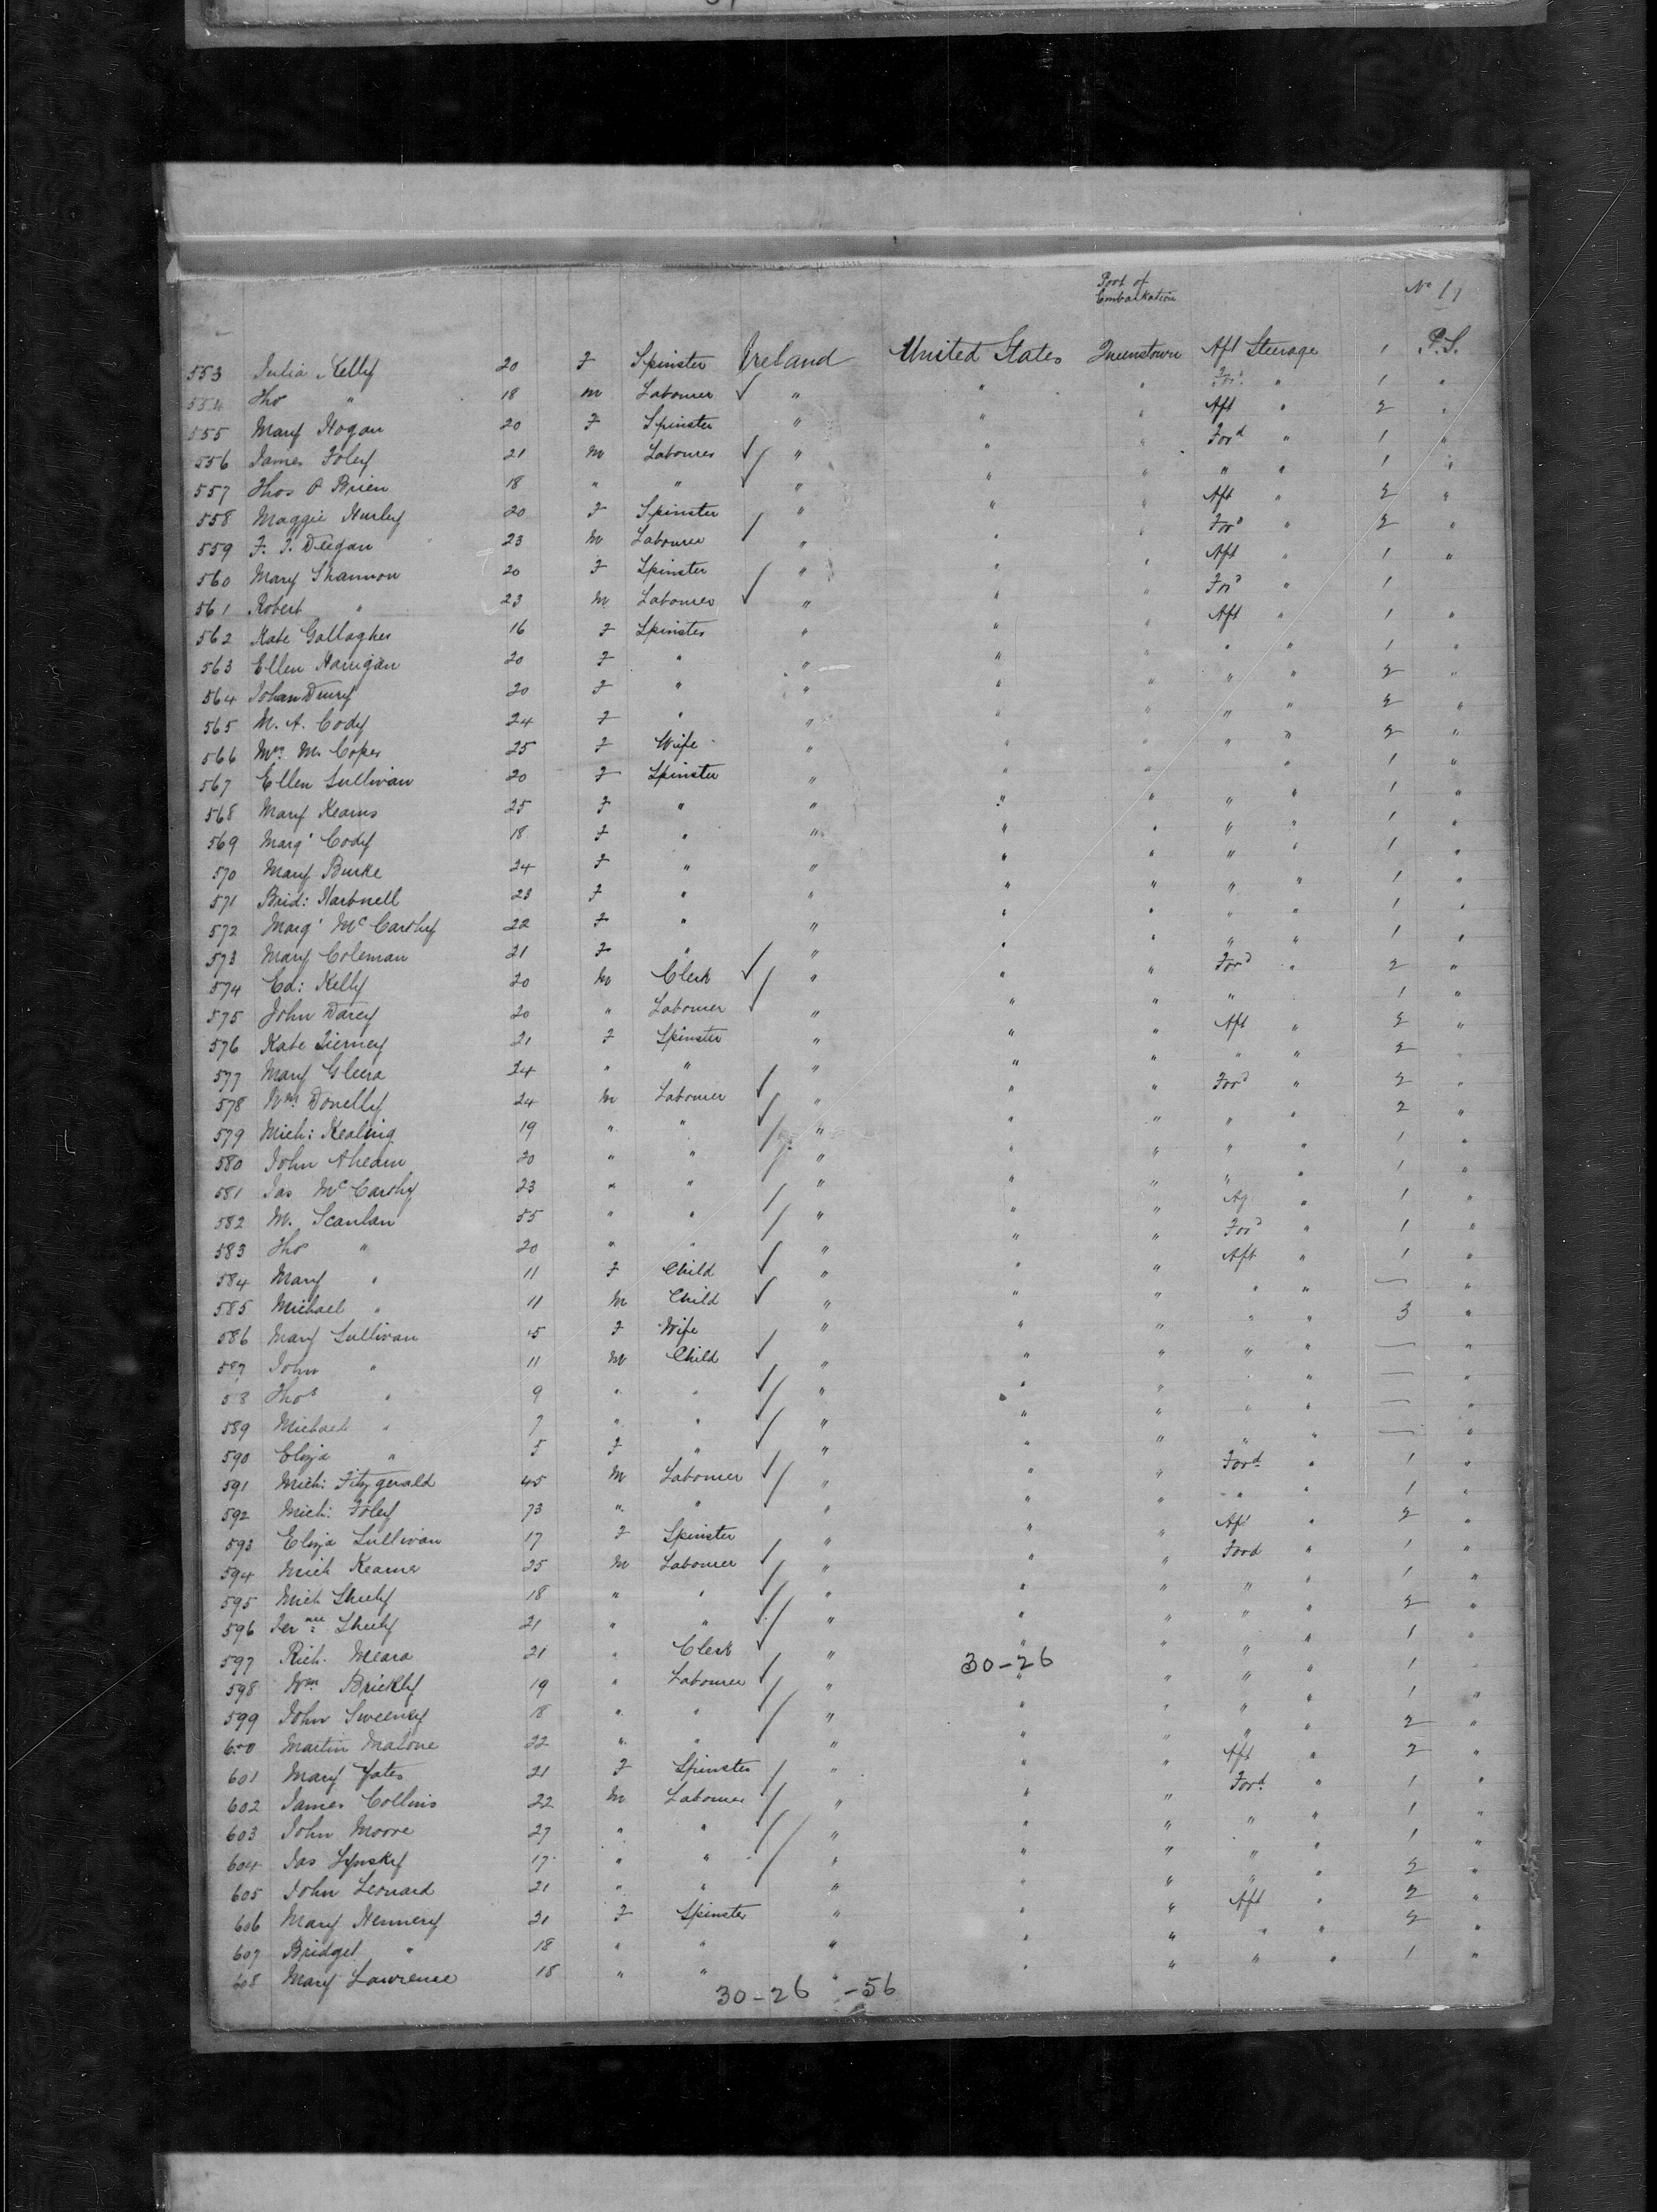 Port of
Embarkation
No 11
553 Julia Kelly 20 F Spinster Ireland United States Queenstown Aft Steerage 1 P.S.
554 Tho " 18 M Labourer " " " For d " 1 "
555 Mary Hogan 20 F Spinster " " " Aft " 2 "
556 James Foley 21 M Labourer " " " For d " 1 "
557 Thos O Brien 18 " " " " " " " 1 "
558 Maggie Hurley 20 F Spinster " " " Aft " 2 "
559 F. J. Deegan 23 M Labourer " " " For d " 2 "
560 Mary Shannon 20 F Spinster " " " Aft " 1 "
561 Robert " 23 M Labourer " " " For d " 1
562 Kate Gallagher 16 F Spinster " " " Aft " 1 "
563 Ellen Hanigan 20 F " " " " " " 1 "
564 Johan Drury 20 F " " " " " " 2 "
565 M. A. Cody 24 F " " " " " " 2 "
566 Mrs M. Coper 25 F Wife " " " " " 2 "
567 Ellen Sullivan 20 F Spinster " " " " 1 "
568 Mary Kearns 25 F " " " " " " 1 "
569 Marg t Cody 18 F " " " " " " 1 "
570 Mary Burke 24 F " " " " " " 1 "
571 Brid: Hartnell 23 F " " " " " " 1 "
572 Marg t McCarthy 22 F " " " " " " 1 "
573 Mary Coleman 21 F " " " " " " 1 "
574 Ed: Kelly 20 M Clerk " " " For d " 2 "
575 John Darcy 20 " Labourer " " " " 1 "
576 Kate Tierney 21 F Spinster " " " Aft " 2 "
577 Mary Gleera 24 " " " " " " " 2
578 Wm Donelly 24 M Labourer " " " For d " 2 "
579 Mich: Kealing 19 " " " " " " " 2 "
580 John Ahearn 20 " " " " " " " 1 "
581 Jas McCarthy 23 " " " " " " " 1 "
582 M. Scanlan 55 " " " " " Af " 1 "
583 Tho " 20 " " " " " For d " 1 "
584 Mary " 11 F Child " " " Aft 1 "
585 Michael " 11 M Child " " " " " — "
586 Mary Sullivan 45 F Wife " " " " " 3 "
587 John " 11 M Child " " " " " — "
58 Thos " 9 " " " " " " — "
589 Michael " 7 " " " " " " " — "
590 Eliza " 5 F " " " " " " — "
591 Mich: Fitzgerald 45 M Labourer " " " Ford " 1 "
592 Mich: Foley 73 " " " " " " " 1 "
593 Eliza Sullivan 17 F Spinster " " " Aft " 2 "
594 Mich Kearne 25 M Labourer " " " Ford " 1 "
595 Mich Sheehy 18 " " " " " " " 1 "
596 Sheehy 21 " " " " " " " 2 "
597 Rich. Meara 21 " Clerk " " " " " 1 "
30-26
598 Wm Brickly 19 " Labourer " " " " " 1
599 John Sweeney 18 " " " " " " " 1 "
600 Martin Malone 22 " " " " " " " 2 "
601 Mary Yates 21 F Spinster " " " Aft " 2 "
602 James Collins 22 M Labourer " " " Ford " 1 "
603 John Moore 27 " " " " " " " 1 "
604 Jas Lynsky 17 " " " " " " " 1 "
605 John Leonard 21 " " " " " " " 2 "
606 Mary Hennery 21 F Spinster " " " Aft " 2 "
607 Bridget " 18 " " " " " " " 2 "
608 Mary Lawrence 18 " " " " " " " 1 "
30-26 -56